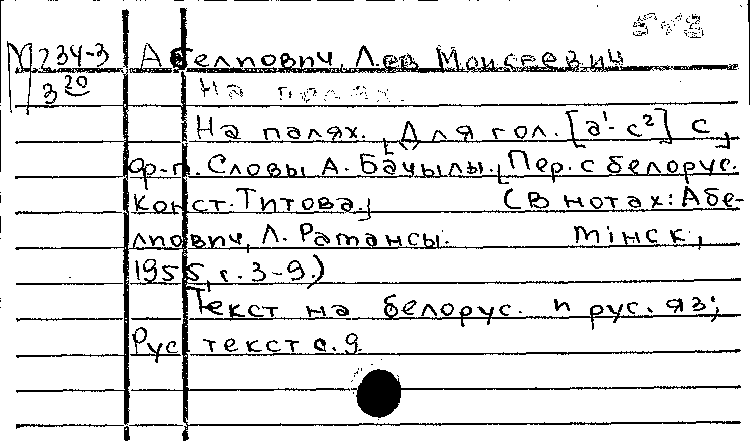 М 234-3 Абелиович, Лев Моисеевич
3 20 На полях.
На палях. [Для гол. [a¹-c²] с
ф-п. Словы А. Бачылы. [Пер. с белорус.
Конст. Титова.] (В нотах: Абе-
лиович, Л. Рамансы. Мінск,
1955, с. 3-9.)
Текст на белорус. и рус. яз;
Рус. текст с. 9